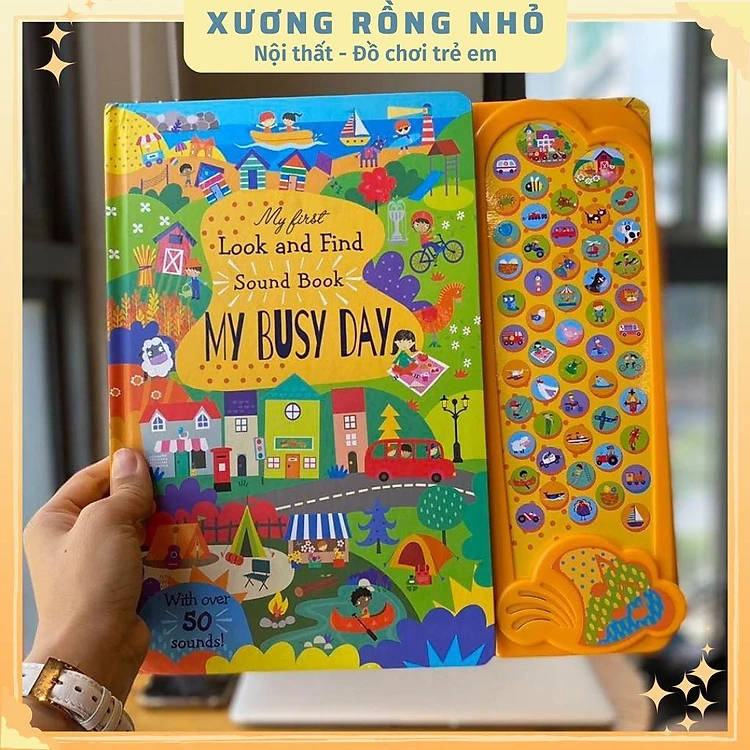 XƯƠNG RỒNG NHỎ
Nội thất - Đồ chơi trẻ em
My first
Look and Find
Sound Book
MY BUSY DAY
With over
50
sounds!